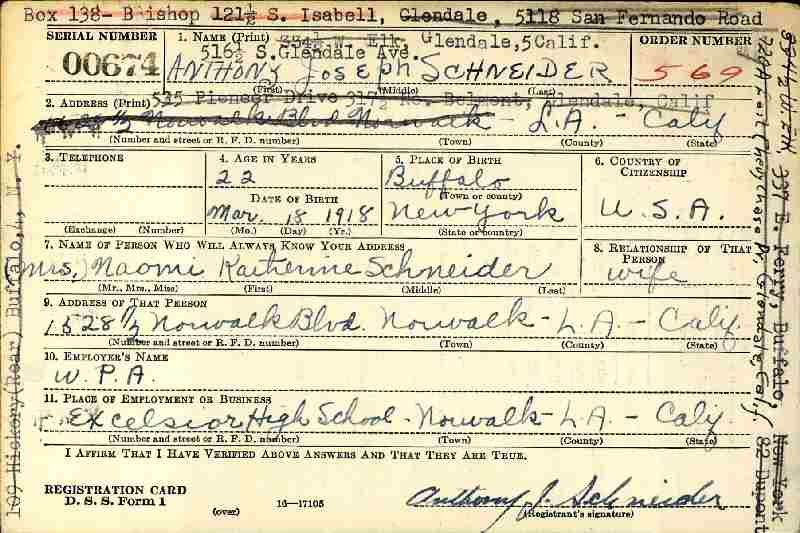 Box 138- Bishop 121½ S. Isabell, Glendale, 5118 San Fernando Road
SERIAL NUMBER
00674
1. NAME (Print) 334½ W. Elk Glendale,5 Calif.
516½ S.Glendale Ave.
ANTHONY JOSEPH SCHNEIDER
(First) (Middle) (Last)
ORDER NUMBER
569
2. ADDRESS (Print) 535 Pioneer Drive 317½ No. Belmont, Glendale, Calif
Norwalk Blvd Norwalk - L.A. - Calif
(Number and street or R. F. D. number) (Town) (County) (State)
3. TELEPHONE
(Exchange) (Number)
4. AGE IN YEARS
22
DATE OF BIRTH
Mar. 18 1918
(Mo.) (Day) (Yr.)
5. PLACE OF BIRTH
Buffalo
(Town or county)
New York
(State or country)
6. COUNTRY OF
CITIZENSHIP
U.S.A.
7. NAME OF PERSON WHO WILL ALWAYS KNOW YOUR ADDRESS
Mrs. Naomi Katherine Schneider
(Mr., Mrs., Miss) (First) (Middle) (Last)
8. RELATIONSHIP OF THAT
PERSON
wife
9. ADDRESS OF THAT PERSON
1528½ Norwalk Blvd. Norwalk - L.A. - Calif.
(Number and street or R. F. D. number) (Town) (County) (State)
10. EMPLOYER'S NAME
W.P.A.
11. PLACE OF EMPLOYMENT OR BUSINESS
Excelsior High School - Norwalk - L.A. - Calif.
(Number and street or R. F. D. number) (Town) (County) (State)
I AFFIRM THAT I HAVE VERIFIED ABOVE ANSWERS AND THAT THEY ARE TRUE.
REGISTRATION CARD
D. S. S. Form 1
(over)
16-17105
Anthony J. Schneider
(Registrant's signature)
109 Hickory(Rear) Buffalo,4, N. Y.
334½ W. Elk 337 E. Ferry, Buffalo, New York
Glendale, Calif. 82 Dupont